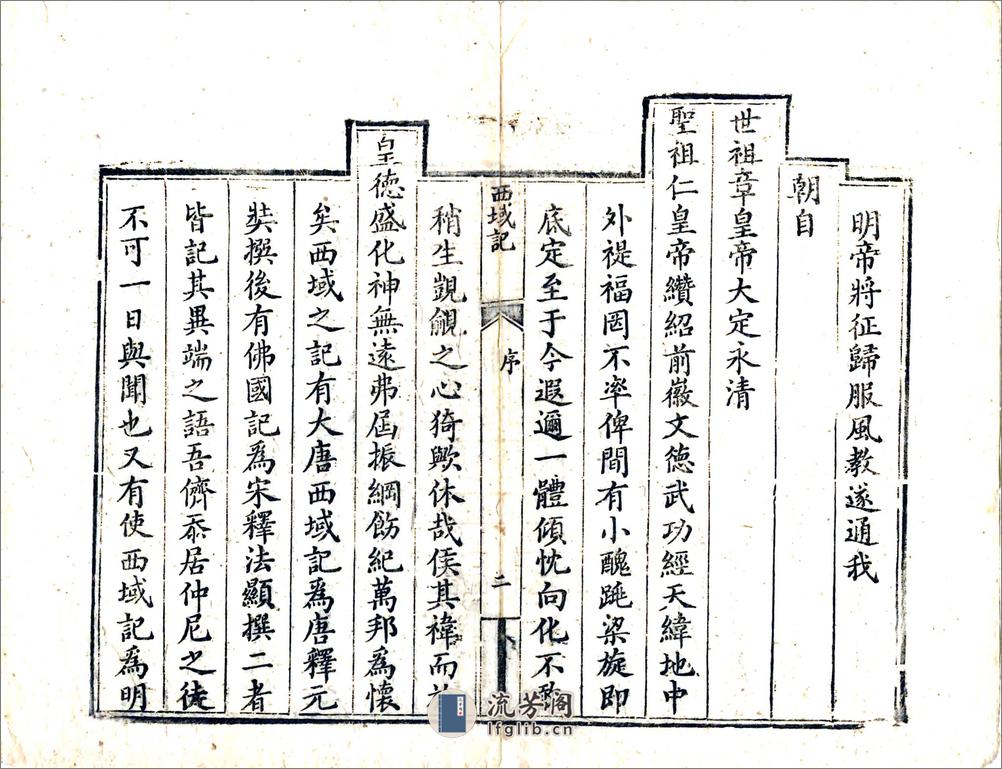 明帝將征歸服風教遂通我
朝自
世祖章皇帝大定永清
聖祖仁皇帝纘紹前徽文德武功經天緯地中
外禔福罔不率俾間有小醜跳梁旋即
底定至于今遐邇一體傾忱向化不敢
西域記
序
二
稍生覬覦之心猗歟休哉侯其禕而
皇德盛化神無遠弗屆振綱飭紀萬邦爲懷
矣西域之記有大唐西域記爲唐釋元
奘撰後有佛國記爲宋釋法顯撰二者
皆記其異端之語吾儕忝居仲尼之徒
不可一日與聞也又有使西域記爲明
流芳閣
lfglib.cn